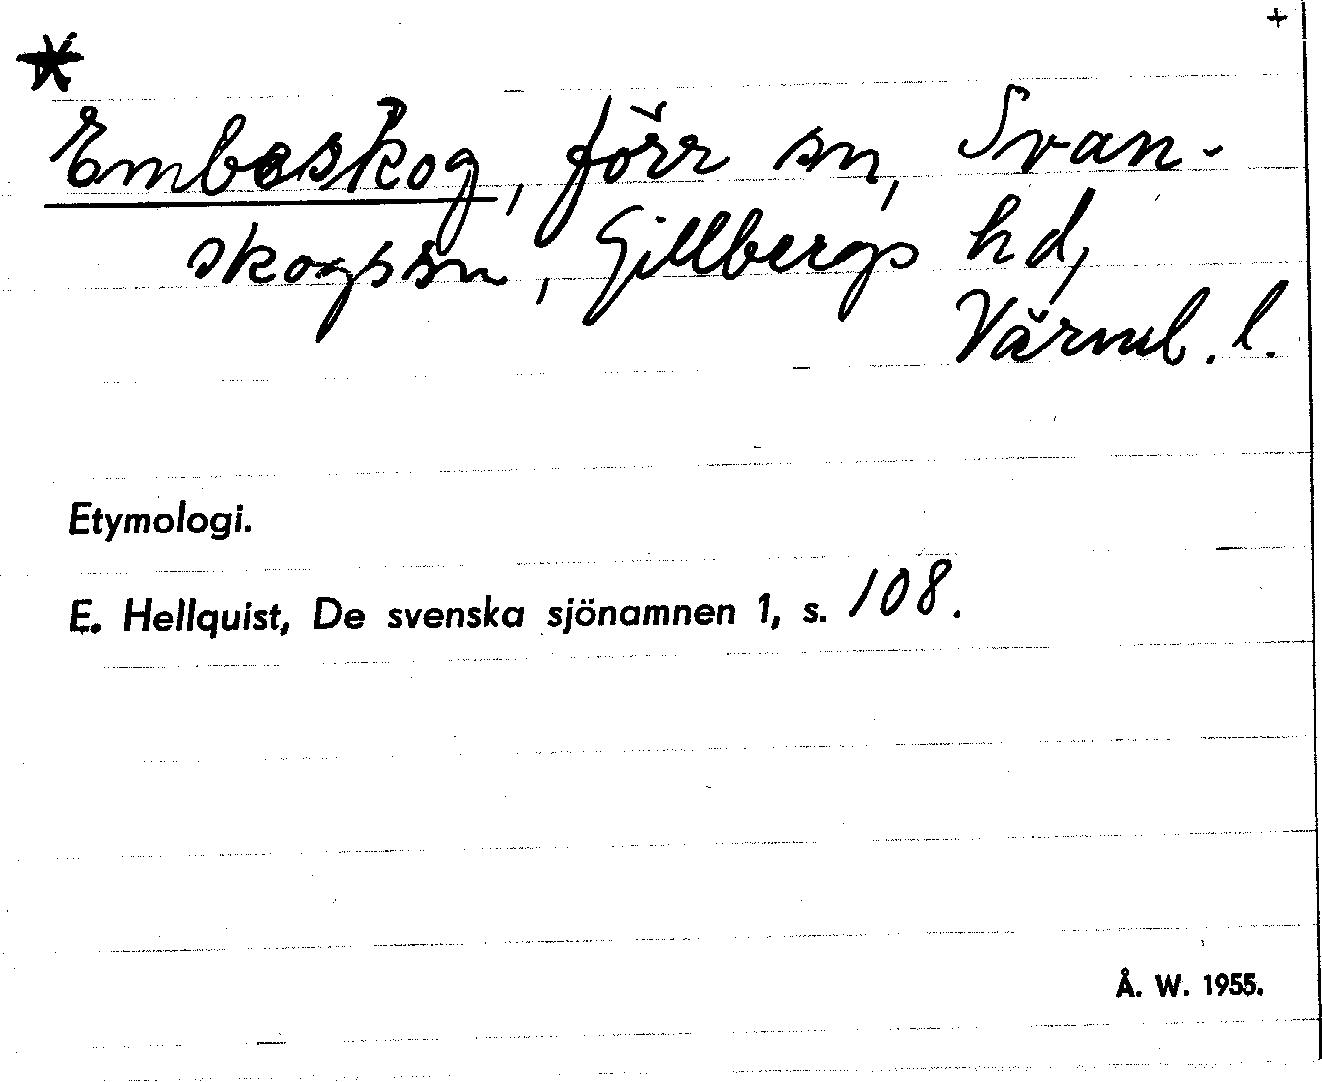 *
+
Embeskog, förr sn, Svan-
skogs sn, Gillbergs hd,
Värml. l.
Etymologi.
E. Hellquist, De svenska sjönamnen 1, s. 108.
Å. W. 1955.